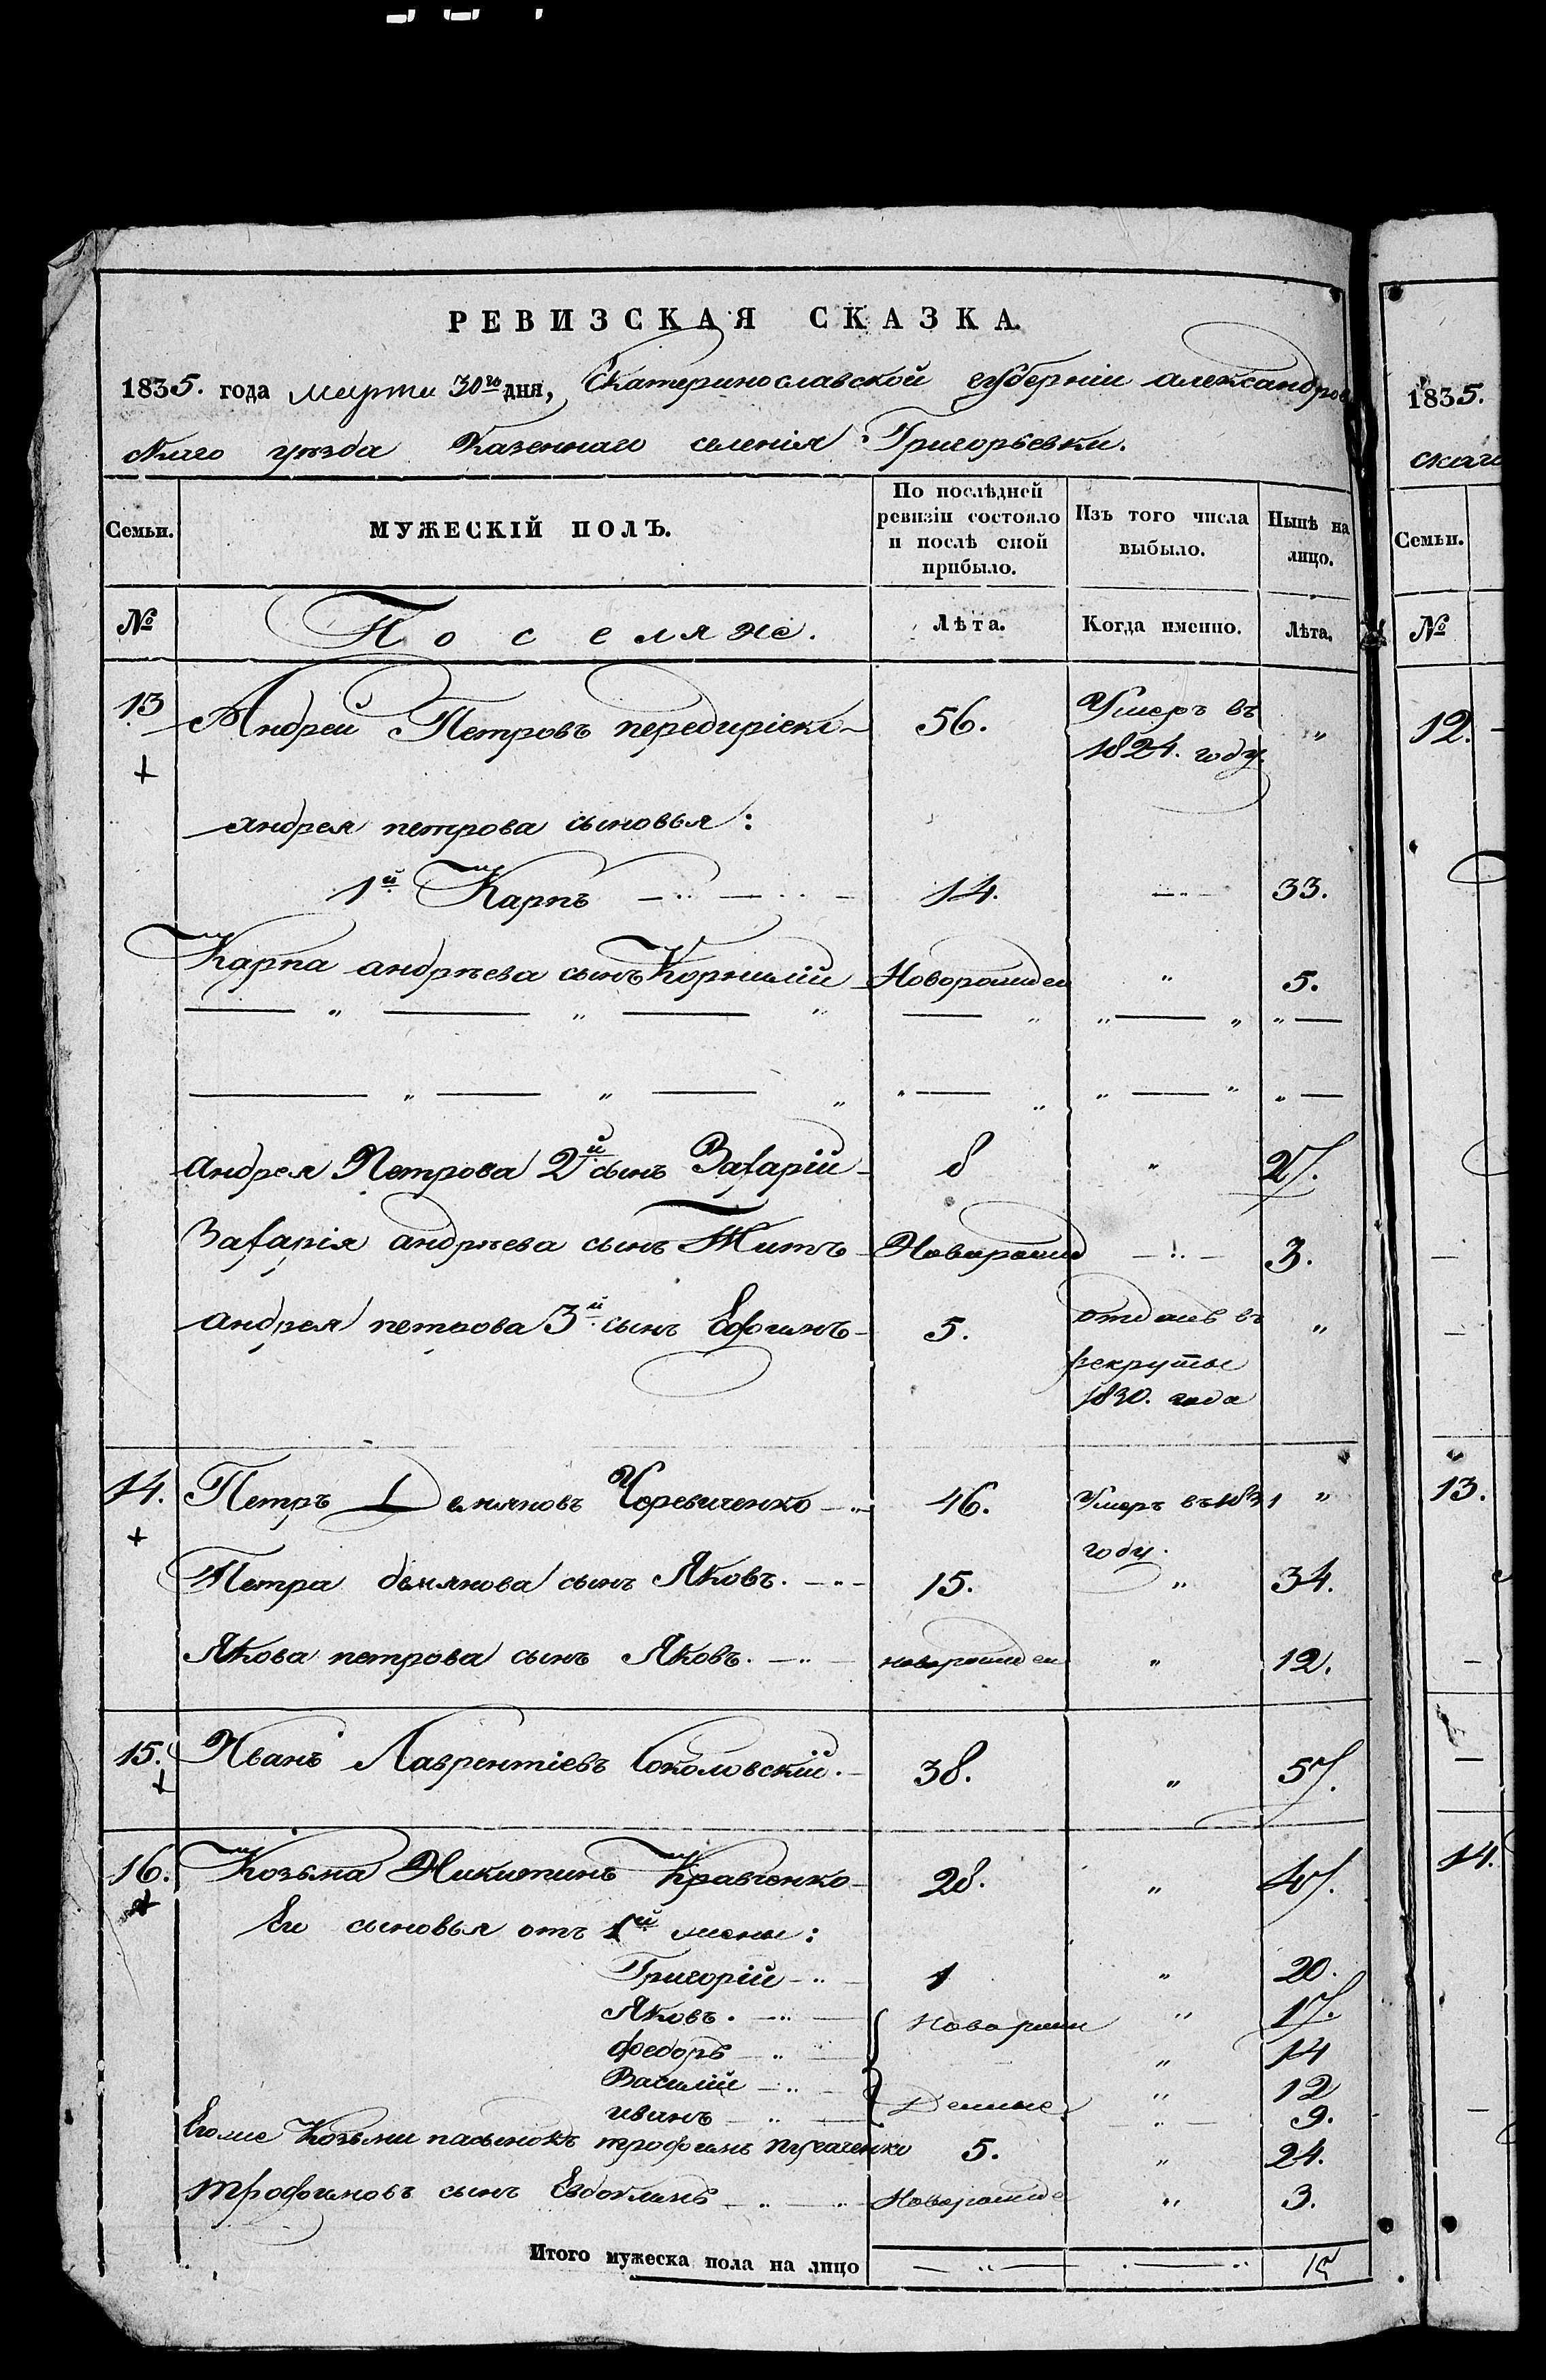 РЕВИЗСКАЯ СКАЗКА.
1835. года марта 30го дня, Екатеринославской губерніи александров
скаго уезда Казеннаго селенія Григорьевки.
Семьи. МУЖЕСКІЙ ПОЛЪ. По послѣдней ревизіи состояло и послѣ оной прибыло. Изъ того числа выбыло. Нынѣ на лицо.
№ Поселяне. Лѣта. Когда именно. Лѣта.
13 Андрей Петровъ 56. Умеръ въ 1824. году. "
андрея петрова сыновья:
1й Карпъ 14. 33.
Карпа андреева сынъ Корнилій Новорожден " 5.
андрея Петрова 2й сынъ Захарій 8 " 27.
Захарія андреева сынъ Титъ Новорожд 3.
андрея петрова 3й сынъ Ефимъ 5. отданъ въ рекруты 1830. года "
14. Петръ Демяновъ Черевиченко 46. Умеръ въ 1831 году. "
Петра демянова сынъ Яковъ. 15. " 34.
Якова петрова сынъ Яковъ. новорожден " 12.
15. Иванъ Лаврентіевъ Соколовскій. 38. " 57.
16. Козьма Никитинъ Кравченко 28. " 47.
Его сыновья отъ 1й жены:
Григорій 1 " 20.
Яковъ. Новорож " 17.
Федоръ " 14
Василій Денные " 12
иванъ " 9.
Егоже Козьмы пасынокъ трофимъ Пугаченко 5. " 24.
трофимовъ сынъ Евдокимъ Новорожде " 3.
Итого мужеска пола на лицо
1835.
скаго
Семьи.
№
12.
13.
14.